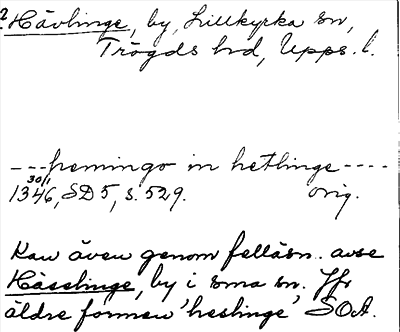 ? Hävlinge, by, Lillkyrka sn,
Trögds hd, Upps. l.
---hemingo in hetlinge----
30/1
1346, SD 5, s. 529. orig.
Kan även genom felläsn. avse
Hässlinge, by i sma sn. Jfr
äldre formen 'heslinge' SOA.